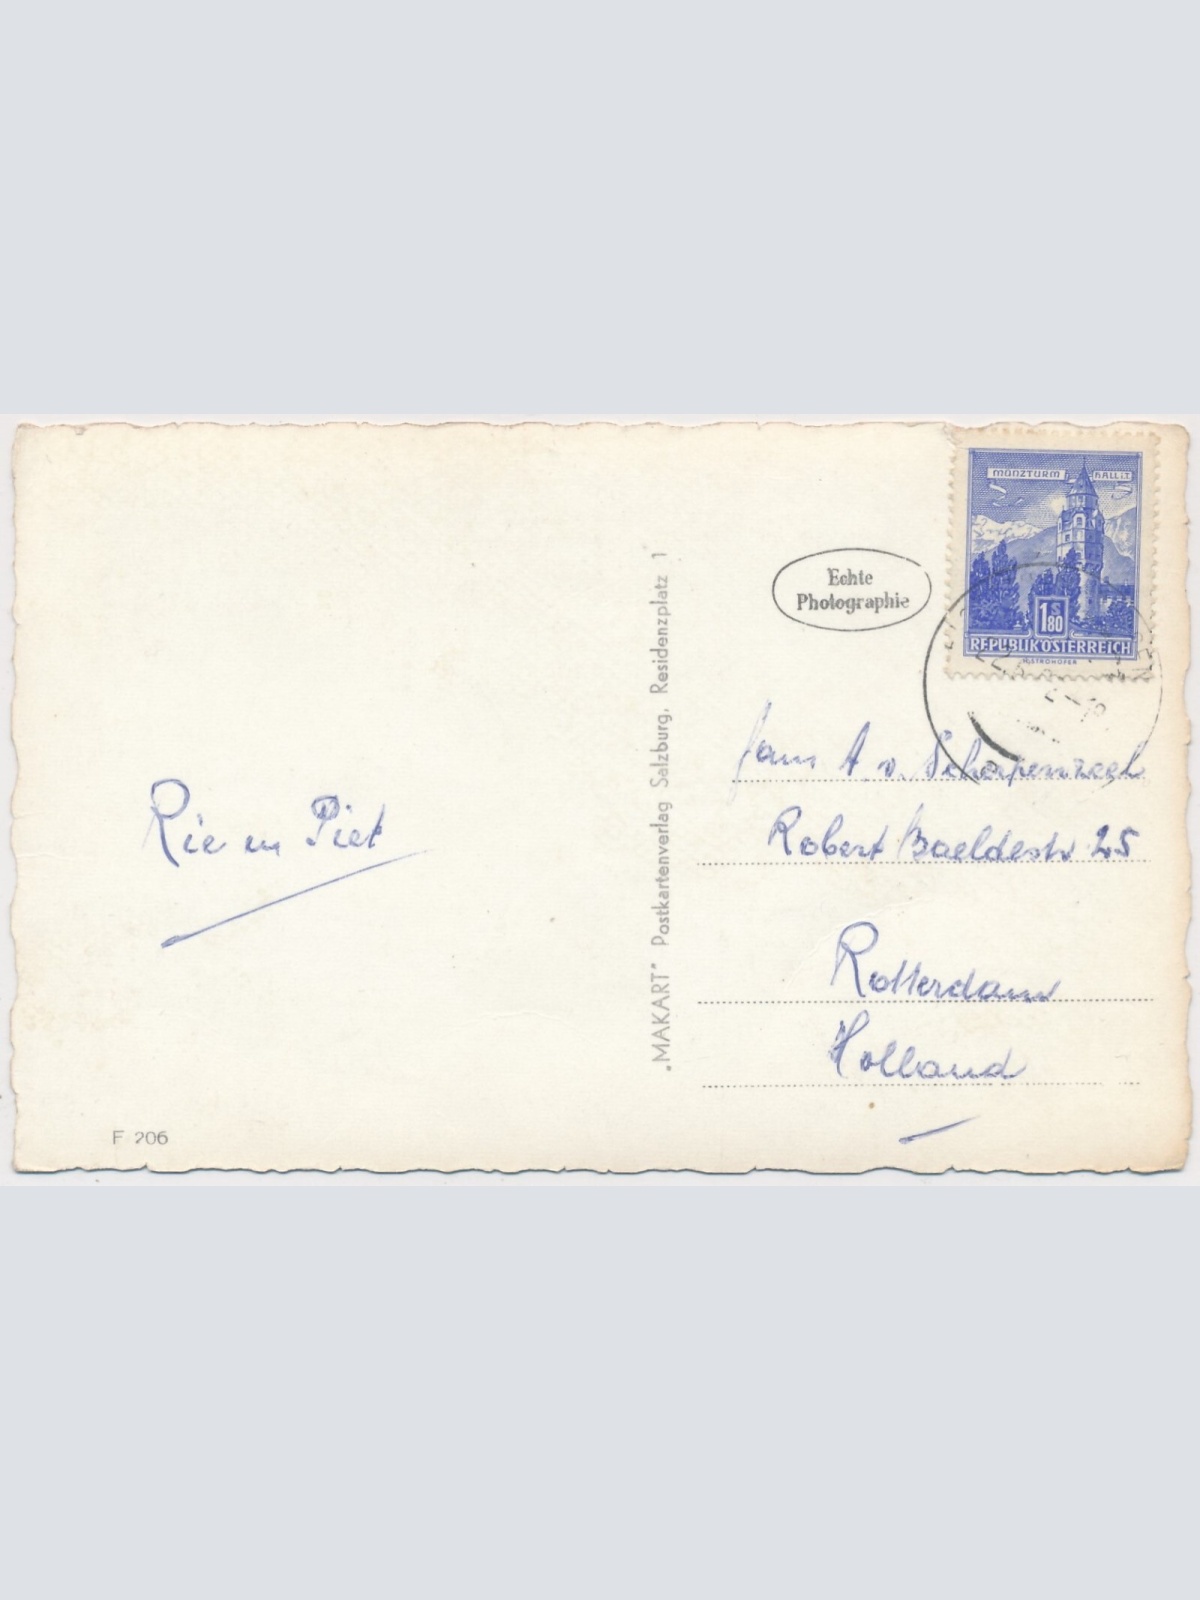 MÜNZTURM HALL i.T.
1 S 80
REPUBLIK ÖSTERREICH
H. STROHOFER
22.6.
Echte
Photographie
„MAKART" Postkartenverlag Salzburg, Residenzplatz 1
Fam A. v. Scherpenzeel
Robert Baeldestr 25
Rotterdam
Holland
Rie en Piet
F 206